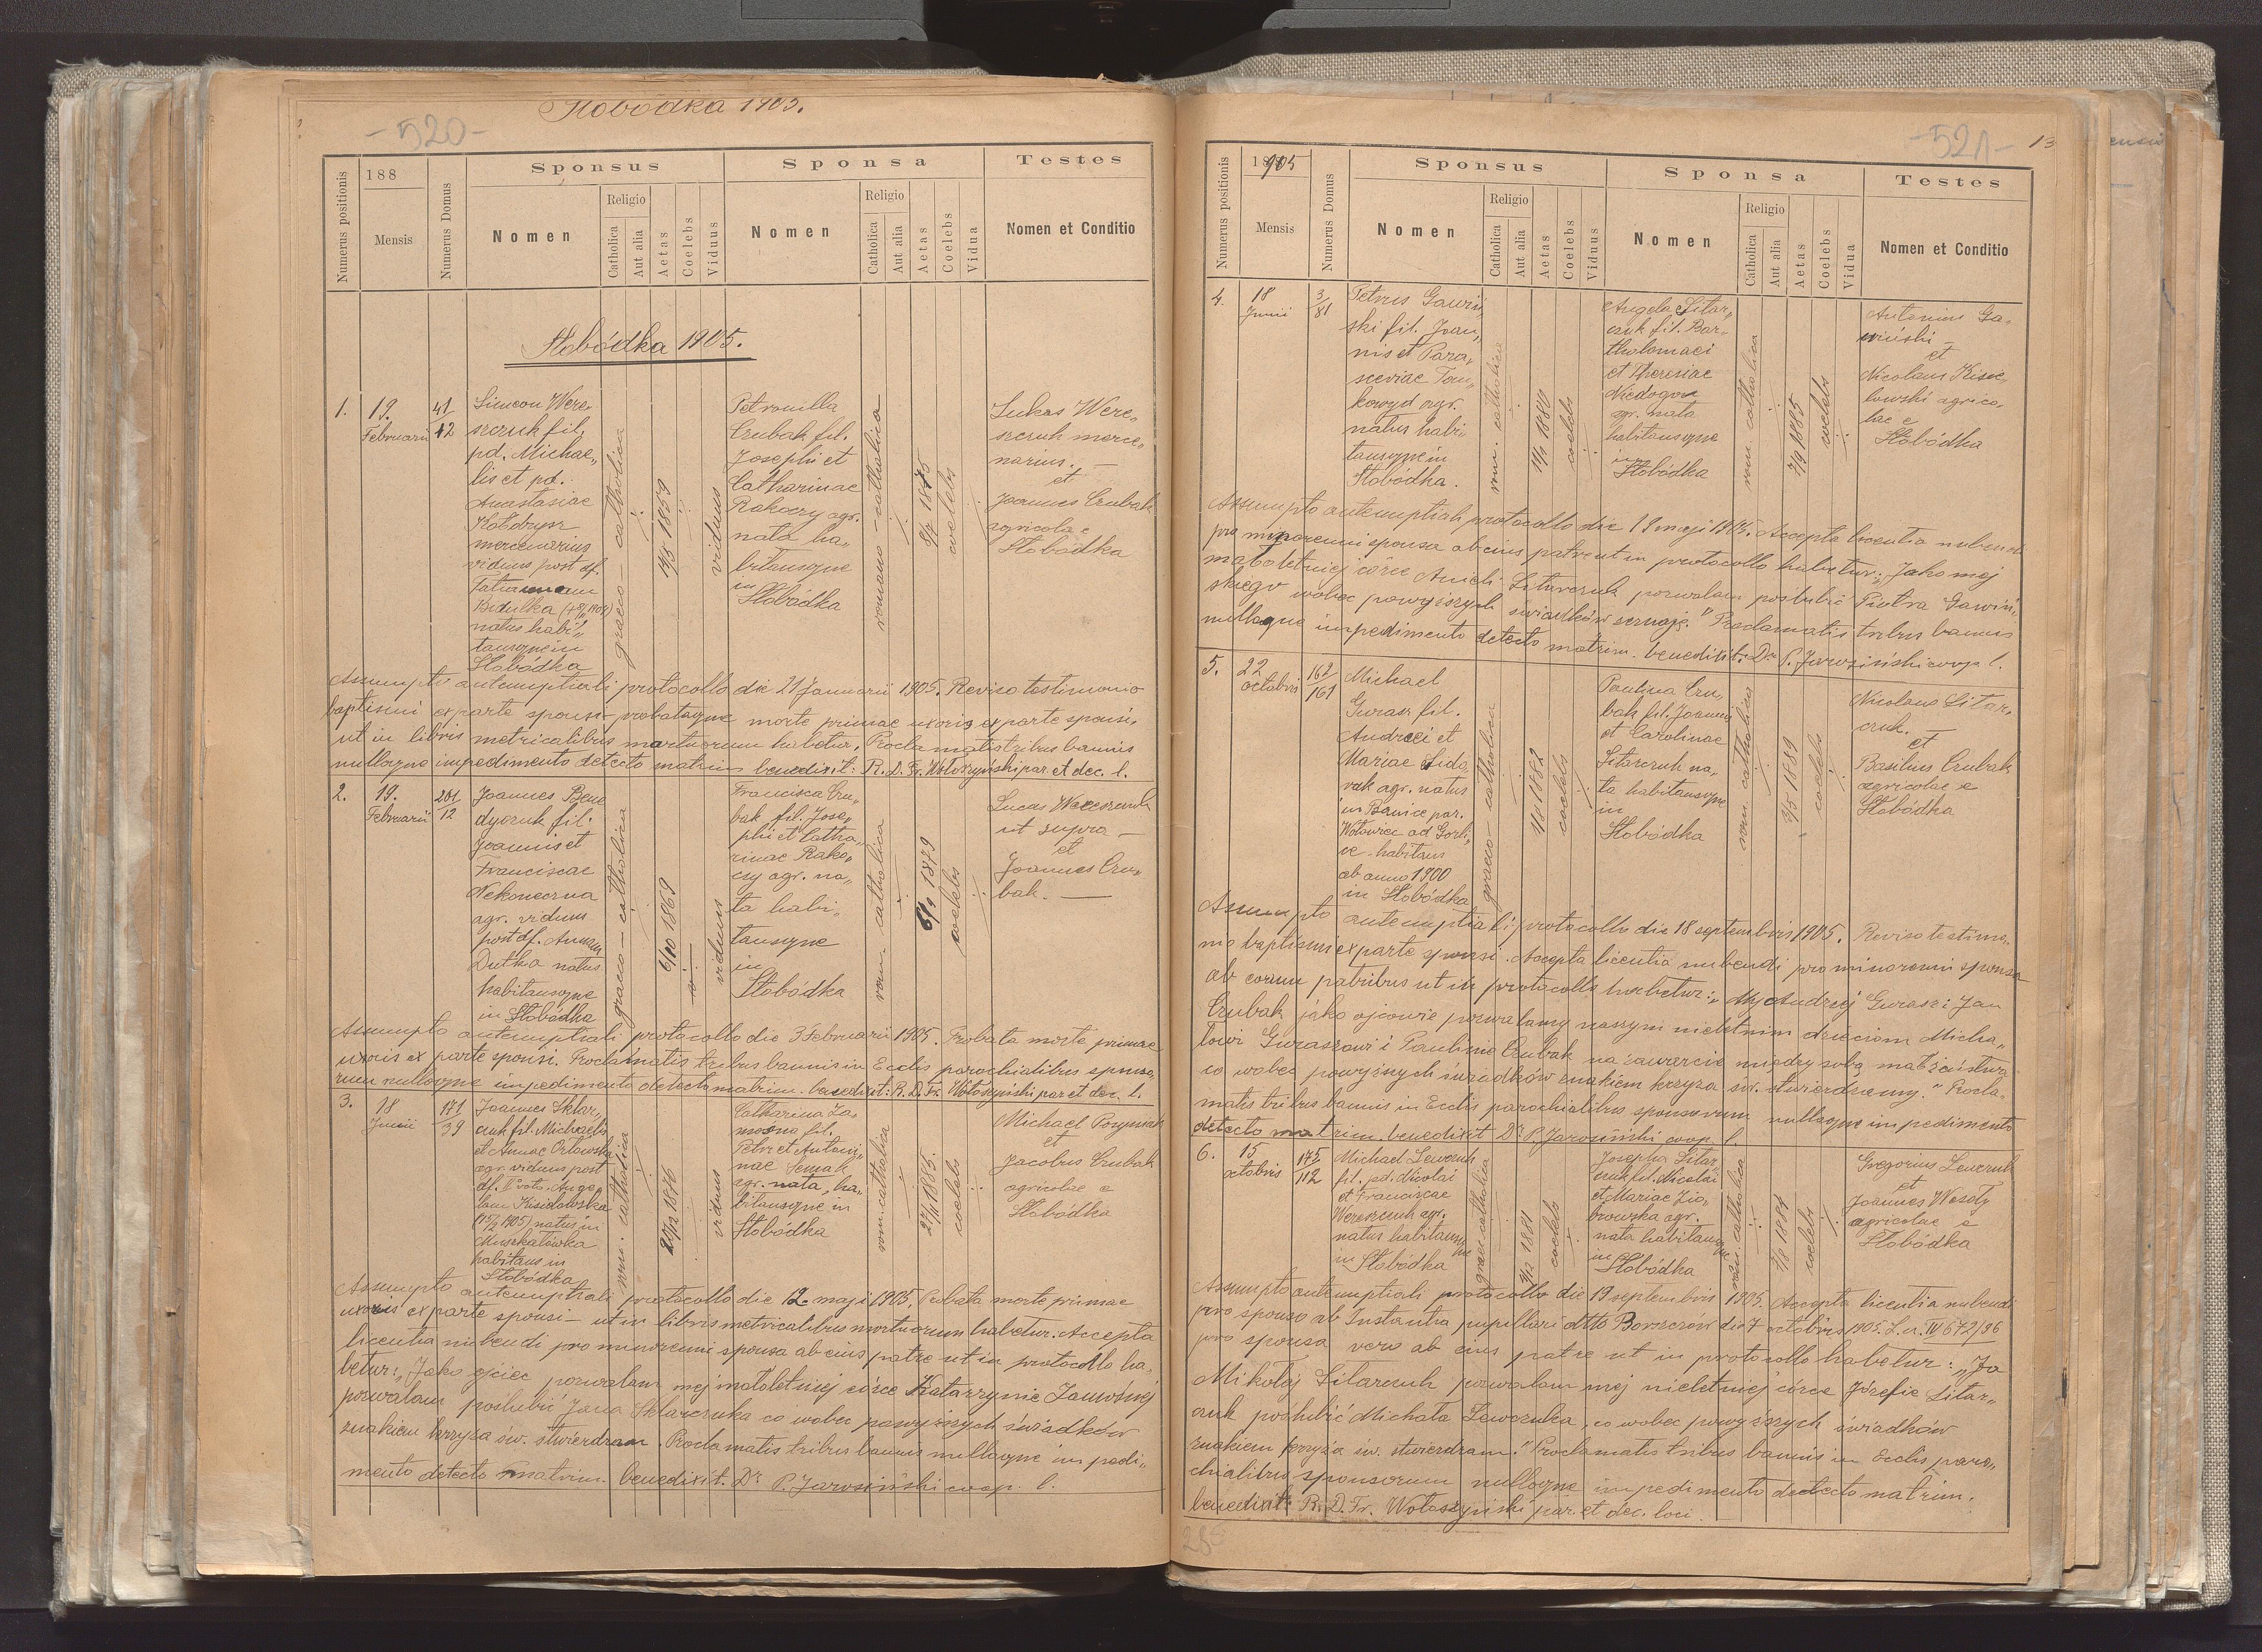 Słobódka 1905.
-520-
Numerus positionis
188
Mensis
Numerus Domus
Sponsus
Nomen
Religio
Catholica
Aut alia
Aetas
Coelebs
Viduus
Sponsa
Nomen
Religio
Catholica
Aut alia
Aetas
Coelebs
Vidua
Testes
Nomen et Conditio
Słobódka 1905.
1.
19.
Februarii
41
42
Simeon Were-
szczuk fil.
pd. Michae„
lis et pd.
Anastasiae
mercenarius
viduus post df.
Tatiannam
Budulka
natus habi„
tansque in
Słobódka
graeco - catholica
1859
viduus
Petronilla
Czubak fil.
Josephi et
Catharinae
Rakoczy agr.
nata ha„
bitansque
in
Słobódka
romano - catholica
1875
coelebs
Lukas Were„
szczuk merce„
narius. —
et
Joannes Czubak
agricolae
Słobódka
Assumpto antenuptiali protocollo die 21 Januarii 1905. Reviso testimonio
baptismi ex parte sponsi - probataque morte primae uxoris ex parte sponsi,
ut in libris metricalibus mortuorum habetur, Proclamatis tribus bannis
nulloque impedimento detecto matrim. benedixit: R. D. Fr. Wołoszyński par. et dec. l.
2.
19.
Februarii
201
12
Joannes Bene
dyczuk fil.
Joannis et
Franciscae
Nekoneczna
agr. viduus
post df. Annam
Dutka natus
habitansque
in Słobódka
graeco - catholica
6/10 1869
viduus
Francisca Czu„
bak fil. Jose„
phi et Catha„
rinae Rako„
czy agr. na„
ta habi„
tansque
in
Słobódka
rom. catholica
1879
coelebs
Lucas Wereszczuk
ut supra —
et
Joannes Czu„
bak. —
Assumpto antenuptiali protocollo die 3 Februarii 1905. Probata morte primae
uxoris ex parte sponsi. Proclamatis tribus bannis in Ecclis parochialibus sponso„
rum nulloque impedimento detecto matrim. benedixit: R. D. Fr. Wołoszyński par. et dec. l.
3.
18
Junii
171
39
Joannes Sklar„
czuk fil. Michaelis
et Annae Orłowska
agr. viduus post
df. II voto Ange„
lam Kisielowska
(15/2 1905) natus in
Muszkatówka
habitans in
Słobódka
rom. catholica
1876
viduus
Catharina Ja„
mosna fil.
Petri et Antoni„
nae Semak
agr. nata, ha„
bitansque in
Słobódka
rom. catholica
27/11 1885.
coelebs
Michael
et
Jacobus Czubak
agricolae e
Słobódka
Assumpto antenuptiali protocollo die 12 maji 1905. Probata morte primae
uxoris ex parte sponsi - ut in libris metricalibus mortuorum habetur. Accepta
licentia nubendi pro minorenni sponsa ab eius patre ut in protocollo ha„
betur: „Jako ojciec pozwalam mej małoletniej córce Katarzynie Jamośnej
pozwalam poślubić Jana Sklarczuka co wobec powyższych świadków
znakiem krzyża św. stwierdzam. Proclamatis tribus bannis nulloque impedi„
mento detecto matrim. benedixit. Dr P. Jarosiński coop. l.
-521-
13
Numerus positionis
18
905
Mensis
Numerus Domus
Sponsus
Nomen
Religio
Catholica
Aut alia
Aetas
Coelebs
Viduus
Sponsa
Nomen
Religio
Catholica
Aut alia
Aetas
Coelebs
Vidua
Testes
Nomen et Conditio
4.
18
Junii
3
81
Petrus Gawiń„
ski fil. Joan„
nis et Para„
sceviae
agr.
natus habi„
tansque in
Słobódka.
rom. catholica
1880
coelebs
Angela Sitar„
czuk fil. Bar„
tholomaei
et Theresiae
agr. nata
habitansque
in
Słobódka
rom. catholica
7/9 1885
coelebs
Antonius Ga„
wiński —
et
Nicolaus Kisie„
lowski agrico„
lae e
Słobódka
Assumpto antenuptiali protocollo die 19 maji 1905. Accepta licentia nubendi
pro minorenni sponsa ab eius patre ut in protocollo habetur: „Jako mej
małoletniej córce Anieli Sitarczuk pozwalam poślubić Piotra Gawiń„
skiego wobec powyższych świadków zeznaję." Proclamatis tribus bannis
nulloque impedimento detecto matrim. benedixit: Dr P. Jarosiński coop. l.
5.
22
octobris
162
161
Michael
Gurasz fil.
Andreei et
Mariae Sido
rak agr. natus
in Banice par.
Wołowiec ad Gorli„
ce - habitans
ab anno 1900
in Słobódka
graeco - catholica
1882
coelebs
Paulina Czu„
bak fil. Joannis
et Carolinae
Sitarczuk na„
ta habitansque
in
Słobódka
rom. catholica
1889
coelebs
Nicolaus Sitar„
czuk.
et
Basilius Czubak
agricolae e
Słobódka
Assumpto antenuptiali protocollo die 18 septembris 1905. Reviso testimo„
nio baptismi ex parte sponsi. Accepta licentia nubendi pro minorenni sponsa
ab eorum patribus ut in protocollo habetur: „My Andrzej Gurasz i Jan
Czubak jako ojcowie pozwalamy naszym nieletnim dzieciom Micha„
łowi Guraszowi i Paulinie Czubak na zawarcie między sobą małżeństwa
co wobec powyższych świadków znakiem krzyża św. stwierdzamy." Procla„
matis tribus bannis in Ecclis parochialibus sponsorum nulloque impedimento
detecto matrim. benedixit Dr P. Jarosiński coop. l.
6.
15
octobris
175
112
Michael Lewczuk
fil. pd. Nicolai
et Franciscae
Wereszczuk agr.
natus habitansque
in Słobódka
graeco catholica
1881
coelebs
Josepha Sitar„
czuk fil. Nicolai
et Mariae Zio„
browska agr.
nata habitansque
in
Słobódka
rom. catholica
coelebs
Gregorius Lewczuk
et
Joannes Wesoły
agricolae e
Słobódka
Assumpto antenuptiali protocollo die 19 septembris 1905. Accepta licentia nubendi
pro sponso ab Instantia pupillari dtto Borszczów die 7 octobris 1905. L. n. IV 672/96
pro sponsa vero ab eius patre ut in protocollo habetur: „Ja
Mikołaj Sitarczuk pozwalam mej nieletniej córce Józefie Sitar„
czuk poślubić Michała Lewczuka, co wobec powyższych świadków
znakiem krzyża św. stwierdzam." Proclamatis tribus bannis in Ecclis paro„
chialibus sponsorum nulloque impedimento detecto matrim.
benedixit: R. D. Fr. Wołoszyński par. et dec. loci.